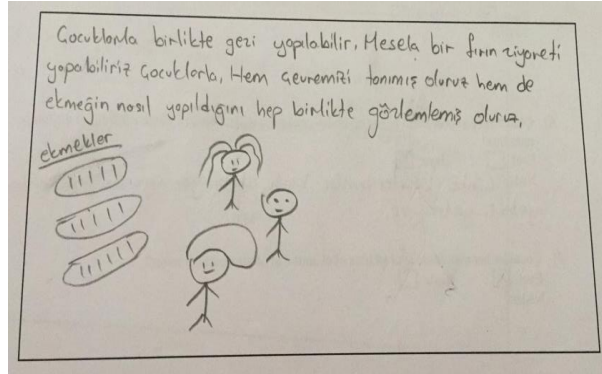 Çocuklarla birlikte gezi yapılabilir. Mesela bir fırın ziyareti
yapabiliriz çocuklarla. Hem çevremizi tanımış oluruz hem de
ekmeğin nasıl yapıldığını hep birlikte gözlemlemiş oluruz.
ekmekler